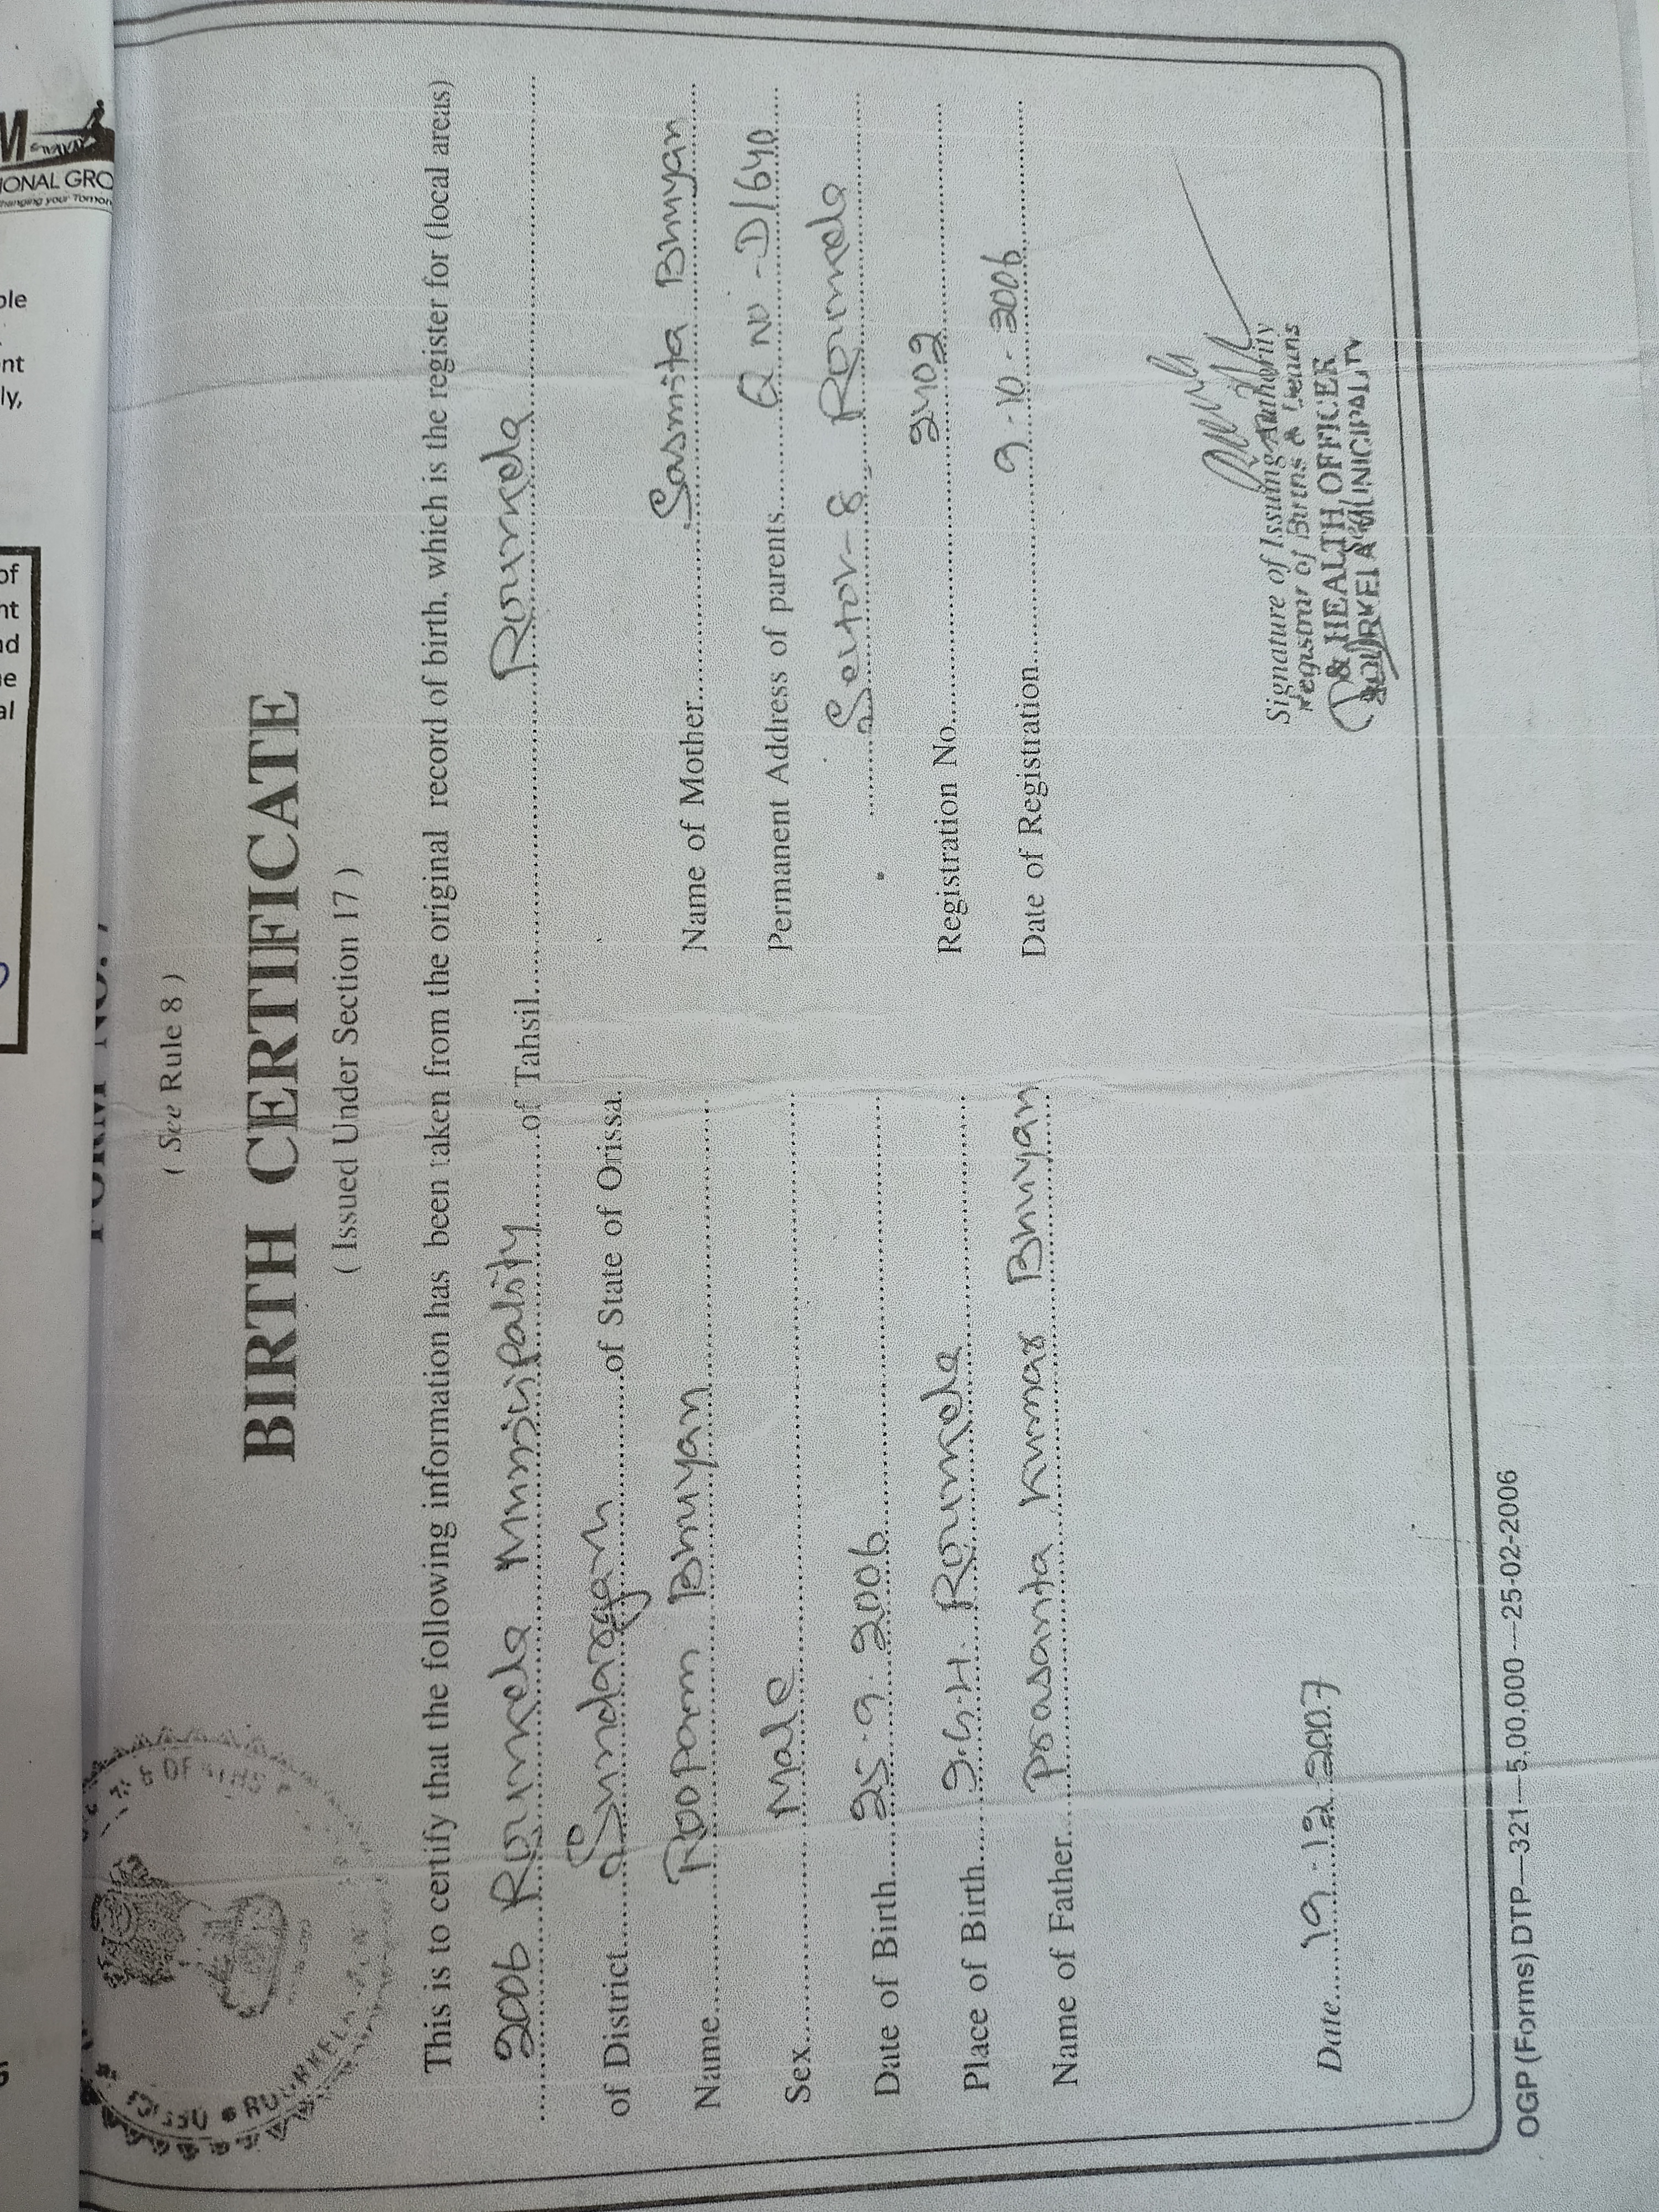 FORM NO.
( See Rule 8 )
BIRTH CERTIFICATE
( Issued Under Section 17 )
This is to certify that the following information has been taken from the original record of birth, which is the register for (local areas)
2006 Rourkela Municipality of Tahsil Rourkela
of District Sundargarh of State of Orissa.
Name Roopam Bhuyan
Sex Male
Date of Birth 25.9.2006
Place of Birth I.G.H. Rourkela
Name of Father Prasanta Kumar Bhuyan
Name of Mother Sasmita Bhuyan
Permanent Address of parents Q NO-D/640
Sector-8, Rourkela
Registration No. 2402
Date of Registration 9-10-2006
Date 19.12.2007
Signature of Issuing Authority
Registrar of Births & Deaths
& HEALTH OFFICER
ROURKELA MUNICIPALITY
OGP (Forms) DTP—321—5,00,000—25-02-2006
M
IONAL GRO
hanging your Tomor
ple
nt
ly,
of
nt
nd
ne
al